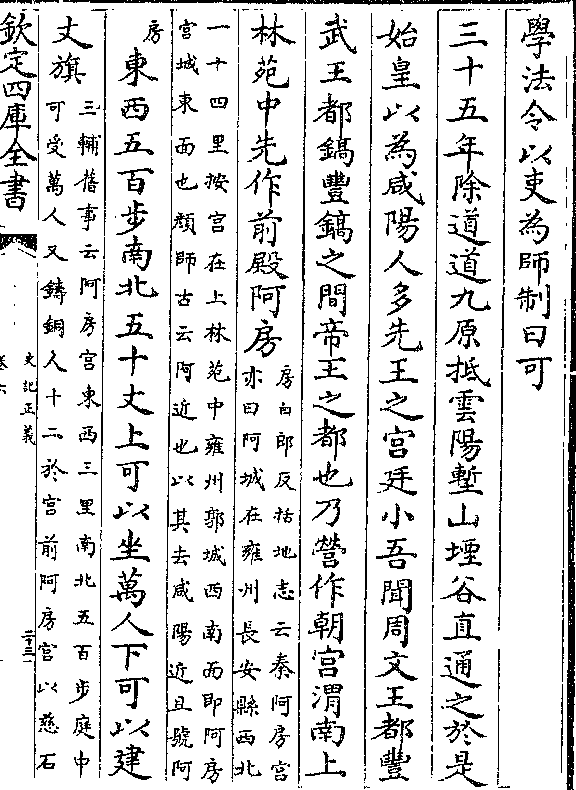 學法令以吏為師制曰可
三十五年除道道九原抵雲陽塹山堙谷直通之於是
始皇以為咸陽人多先王之宮廷小吾聞周文王都豐
武王都鎬豐鎬之間帝王之都也乃營作朝宮渭南上
林苑中先作前殿阿房
房白郎反括地志云秦阿房宮
亦曰阿城在雍州長安縣西北
一十四里按宮在上林苑中雍州郭城西南面即阿房
宮城東面也顏師古云阿近也以其去咸陽近且號阿
房
東西五百步南北五十丈上可以坐萬人下可以建
丈旗
三輔舊事云阿房宮東西三里南北五百步庭中
可受萬人又鑄銅人十二於宮前阿房宮以慈石
欽定四庫全書
史記正義
卷六
二十三